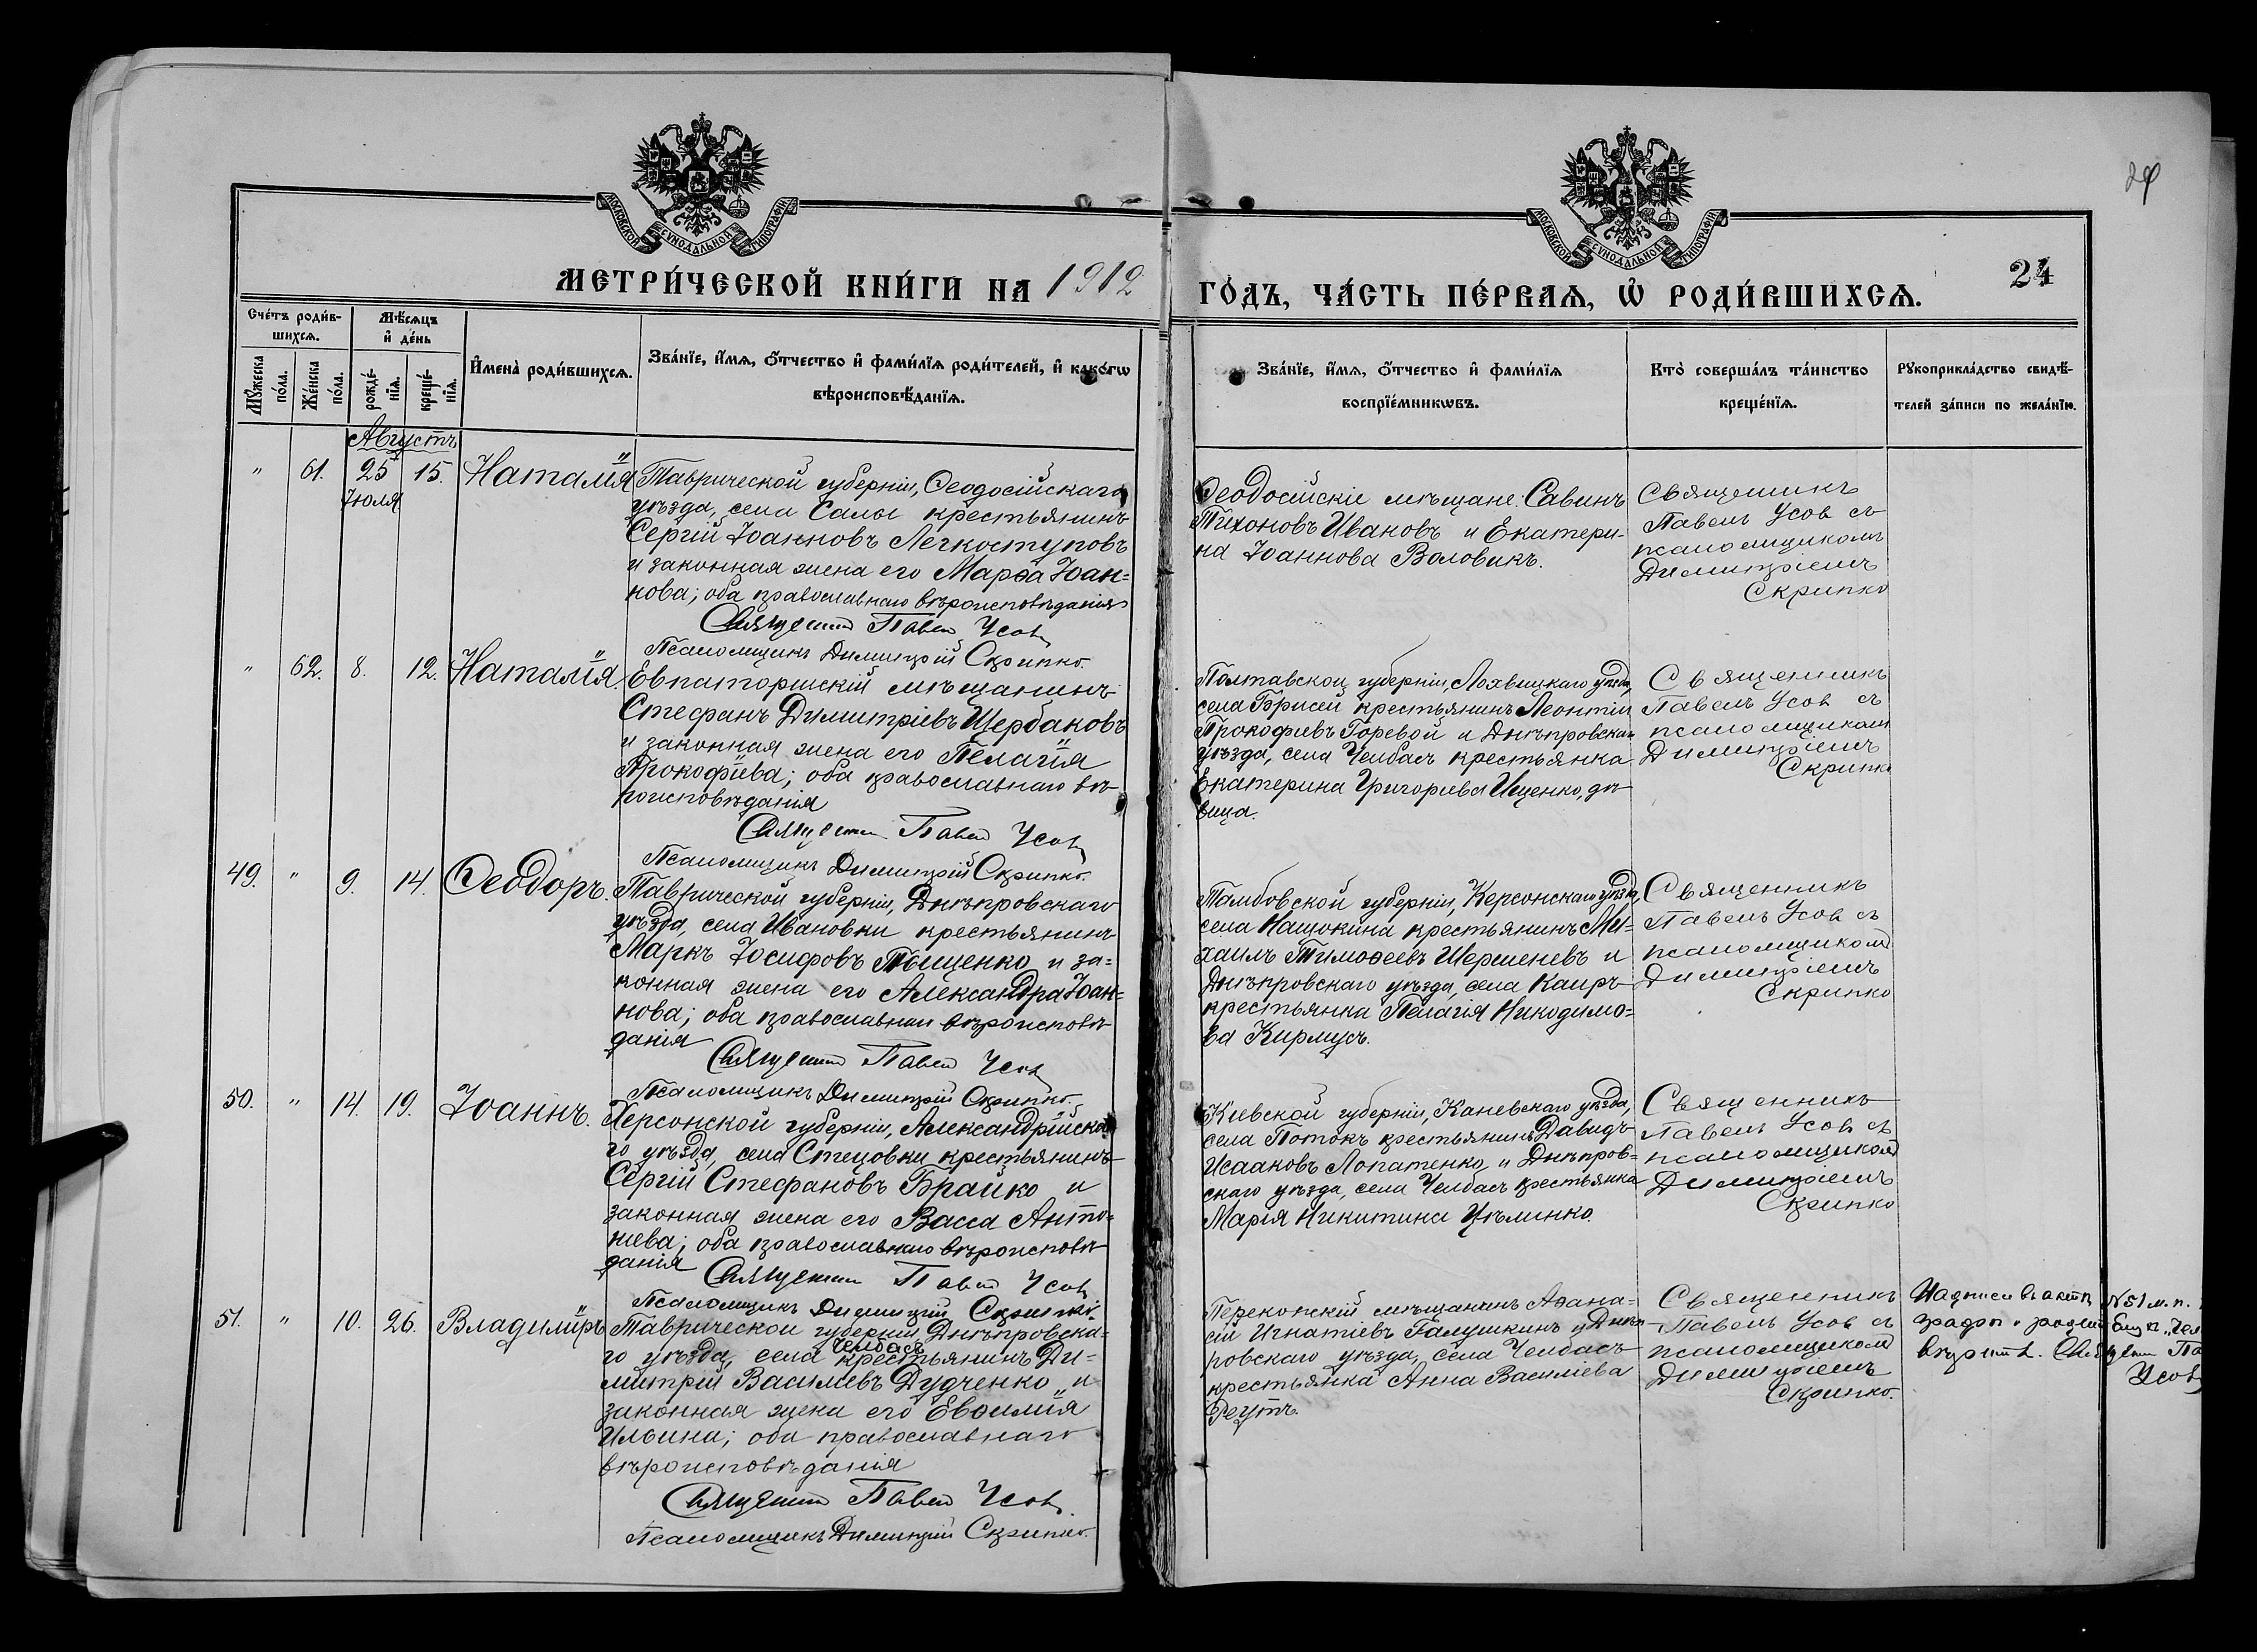 24
МОСКОВСКОЙ СѴНОДАЛЬНОЙ ТИПОГРАФІИ
МОСКОВСКОЙ СѴНОДАЛЬНОЙ ТИПОГРАФІИ
МЕТРИ́ЧЕСКОЙ КНИ́ГИ НА 1912
ГО́ДЪ, ЧА́СТЬ ПЕ́РВАѦ, Ѡ҆ РОДИ́ВШИХСѦ.
24
Сче́тъ роди́в-
шихсѧ.
Мѣ́сѧцъ
и҆ де́нь
Мꙋ́жеска по́ла.
Же́нска по́ла.
рожде́-
нїѧ.
креще́-
нїѧ.
И҆мена̀ роди́вшихсѧ.
Зва́нїе, и҆́мѧ, ѻ҆́тчество и҆ фами́лїѧ роди́телей, и҆ како́гѡ
вѣроисповѣ́данїѧ.
Зва́нїе, и҆́мѧ, ѻ҆́тчество и҆ фами́лїѧ
воспрїе́мникѡвъ.
Кто̀ соверша́лъ та́инство
креще́нїѧ.
Рꙋкоприкла́дство свидѣ́-
телей за́писи по жела́нїю.
Августъ
" 61. 25 Іюля 15. Наталія
Таврической губерніи, Ѳеодосійскаго
уѣзда, села Салы крестьянинъ
Сергій Іоанновъ Легкоступовъ
и законная жена его Марѳа Іоан=
нова; оба православнаго вѣроисповѣданія
Священникъ Павелъ Усовъ
Псаломщикъ Димитрій Скрипко.
Ѳеодосійскіе мѣщане: Савинъ
Тихоновъ Ивановъ и Екатери-
на Іоаннова Воловикъ.
Священникъ
Павелъ Усовъ съ
псаломщикомъ
Димитріемъ
Скрипко
" 62. 8. 12. Наталія.
Евпаторійскій мѣщанинъ
Стефанъ Димитріевъ Щербаковъ
и законная жена его Пелагія
Прокофіева; оба православнаго вѣ-
роисповѣданія
Священникъ Павелъ Усовъ
Псаломщикъ Димитрій Скрипко.
Полтавской губерніи, Лохвицкаго уѣзда,
села крестьянинъ Леонтій
Прокофіевъ Горевой и Днѣпровскаго
уѣзда, села Челбасъ крестьянка
Екатерина Григоріева Ищенко, дѣ-
вица.
Священникъ
Павелъ Усовъ съ
псаломщикомъ
Димитріемъ
Скрипко
49. " 9. 14. Ѳеодоръ.
Таврической губерніи, Днѣпровскаго
уѣзда, села Ивановки крестьянинъ
Маркъ Іосифовъ и за=
конная жена его Александра Іоан=
нова; оба православнаго вѣроисповѣ-
данія
Священникъ Павелъ Усовъ
Псаломщикъ Димитрій Скрипко.
Тамбовской губерніи, Керсонскаго уѣзда,
села Нащокина крестьянинъ Ми-
хаилъ Тимоѳеевъ Шершеневъ и
Днѣпровскаго уѣзда, села Каиръ
крестьянка Пелагія Никодимо=
ва Кирмусъ.
Священникъ
Павелъ Усовъ съ
псаломщикомъ
Димитріемъ
Скрипко
50. " 14. 19. Іоаннъ.
Херсонской губерніи, Александрійска-
го уѣзда, села Стецовки крестьянинъ
Сергій Стефановъ Брайко и
законная жена его Васса Анто=
ніева; оба православнаго вѣроисповѣ-
данія
Священникъ Павелъ Усовъ
Псаломщикъ Димитрій Скрипко.
Кіевской губерніи, Каневскаго уѣзда,
села Потокъ крестьянинъ Давидъ
Исааковъ Лопатенко и Днѣпров=
скаго уѣзда, села Челбасъ крестьянка
Марія Никитина
Священникъ
Павелъ Усовъ съ
псаломщикомъ
Димитріемъ
Скрипко
51. " 10. 26. Владиміръ
Таврической губерніи Днѣпровска-
го уѣзда, села Челбасъ крестьянинъ Ди=
митрій Василіевъ Дудченко и
законная жена его Евѳимія
Ильина; оба православнаго
вѣроисповѣданія
Священникъ Павелъ Усовъ
Псаломщикъ Димитрій Скрипко.
Перекопскій мѣщанинъ Аѳана=
сій Игнатіевъ Галушкинъ и Днѣп-
ровскаго уѣзда, села Челбасъ
крестьянка Анна Василіева
Реутъ.
Священникъ
Павелъ Усовъ съ
псаломщикомъ
Димитріемъ
Скрипко.
№ 51 м. п.
Усовъ